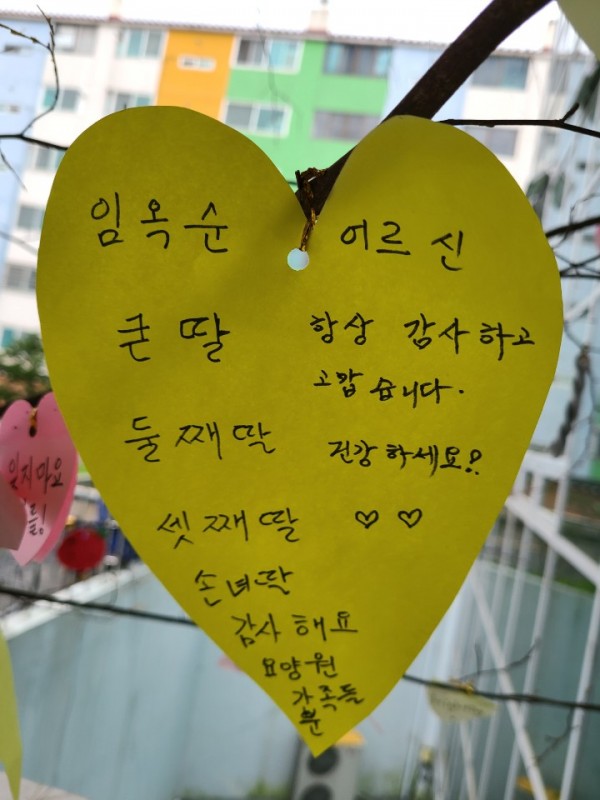 임옥순 어르신
큰 딸
항상 감사하고
고맙습니다.
둘째딸
건강하세요!?
셋째딸 ♡ ♡
손녀딸
감사해요
요양원
가족들
분
잊지마요
들!